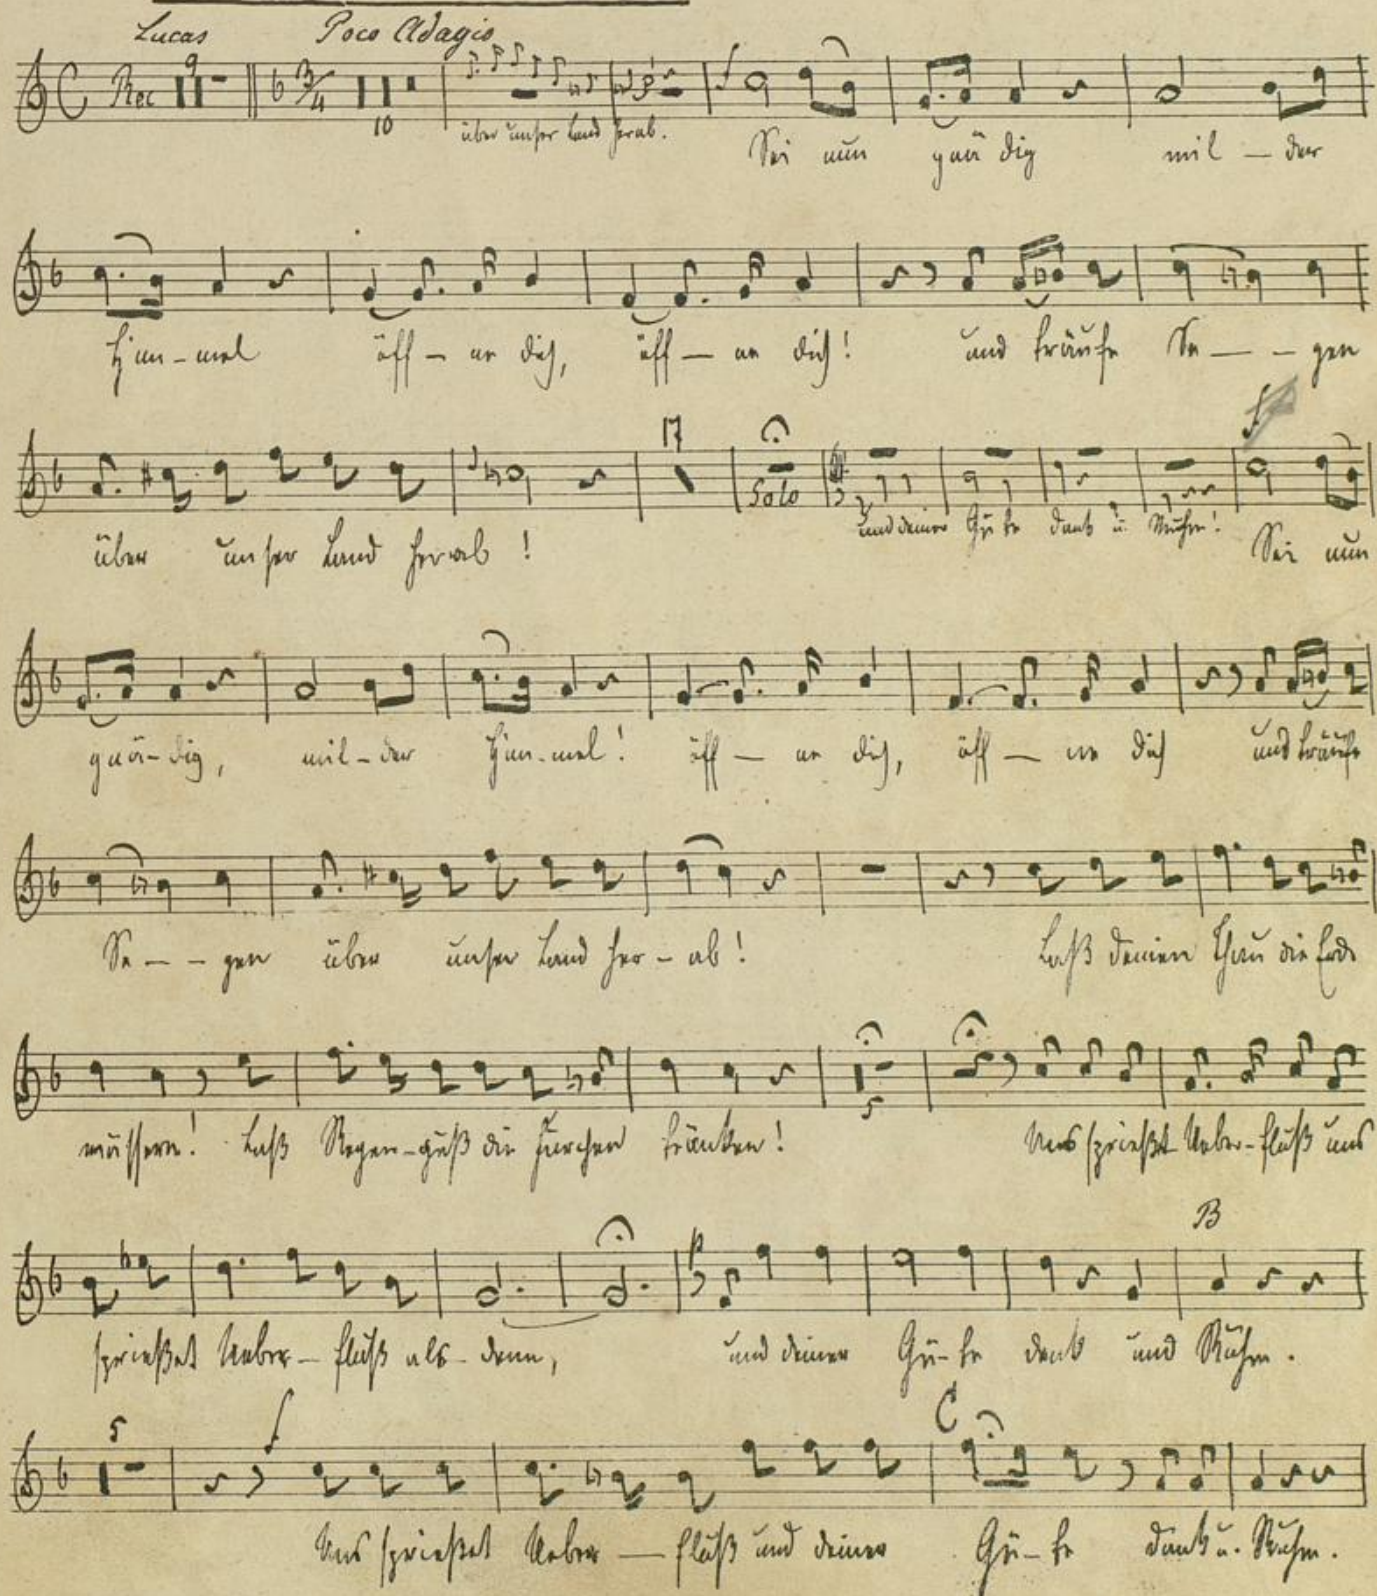 Lucas Poco Adagio
Rec 9 3/4 10 über unser Land herab. Sei nun gnädig mil – der
Him – mel öff – ne dich, öff – ne dich! und träufe Se – – gen
17
über unser Land herab! Solo und deiner Güte Dank u. Ruhm! Sei nun
gnä – dig, mil – der Him – mel! öff – ne dich, öff – ne dich und träufe
Se – – gen über unser Land her – ab! Laß deinen Thau die Erde
5
wässern! Laß Regen – guß die Furchen tränken! Uns sprießet Ueber – fluß uns
B
sprießet Ueber – fluß als – denn, und deiner Gü – te Dank und Ruhm.
5 f C
Uns sprießet Ueber – fluß und deiner Gü – te Dank u. Ruhm.